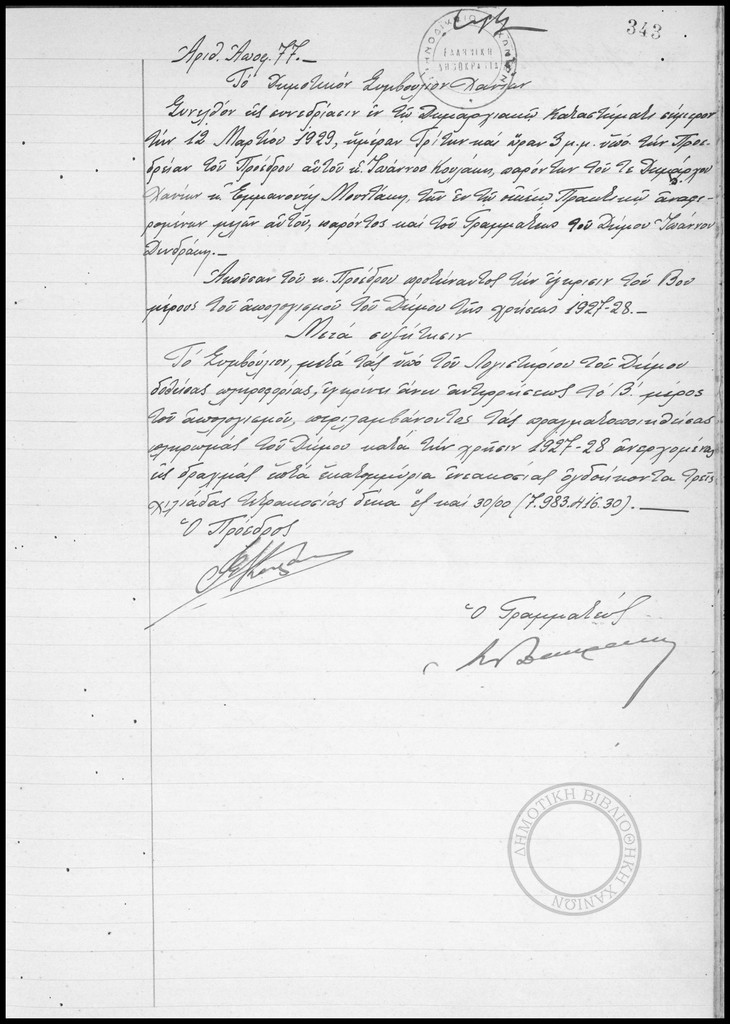 343
ΕΛΛΗΝΙΚΗ
ΔΗΜΟΚΡΑΤΙΑ
Ἀριθ. Ἀποφ. 77.–
Τό Δημοτικόν Συμβούλιον Χανίων
Συνελθόν εἰς συνεδρίασιν ἐν τῷ Δημαρχιακῷ Καταστήματι σήμερον
τήν 12 Μαρτίου 1929, ἡμέραν Τρίτην καί ὥραν 3 μ.μ. ὑπό τήν Προε-
δρείαν τοῦ Προέδρου αὐτοῦ κ. Ἰωάννου Κουλάκη, παρόντων τοῦ τε Δημάρχου
Χανίων κ. Ἐμμανουήλ Μουντάκη, τῶν ἐν τῷ οἰκείῳ Πρακτικῷ ἀναφε-
ρομένων μελῶν αὐτοῦ, παρόντος καί τοῦ Γραμματέως τοῦ Δήμου Ἰωάννου
Δενδράκη.–
Ἀκοῦσαν τοῦ κ. Προέδρου προτείναντος τήν ἔγκρισιν τοῦ Βου
μέρους τοῦ ἀπολογισμοῦ τοῦ Δήμου τῆς χρήσεως 1927-28.–
Μετά συζήτησιν
Τό Συμβούλιον, μετά τάς ὑπό τοῦ Λογιστηρίου τοῦ Δήμου
δοθείσας πληροφορίας, ἐγκρίνει ἄνευ ἀντιρρήσεως τό Β. μέρος
τοῦ ἀπολογισμοῦ, περιλαμβάνοντος τάς πραγματοποιηθείσας
πληρωμάς τοῦ Δήμου κατά τήν χρῆσιν 1927-28 ἀνερχομένας
εἰς δραχμάς ἑπτά ἑκατομμύρια ἐνεακοσίας ὀγδοήκοντα τρεῖς
χιλιάδας τετρακοσίας δέκα ἕξ καί 30/00 (7.983.416.30).–
Ὁ Πρόεδρος
Ὁ Γραμματεύς
ΔΗΜΟΤΙΚΗ ΒΙΒΛΙΟΘΗΚΗ ΧΑΝΙΩΝ